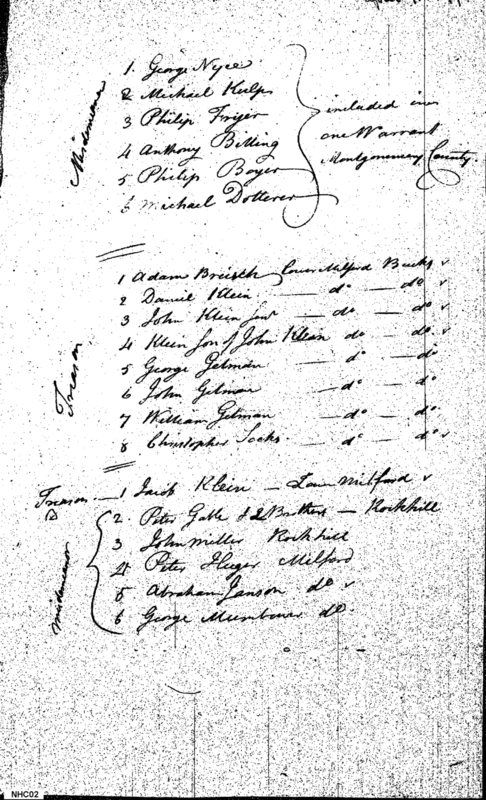 Misdemeanor
1. George Nyce
2 Michael Kulps
3 Philip Fryer
4 Anthony Bitting
5 Philip Boyer
6 Michael Dotterer
included in
one Warrant
Montgomery County.
Treason
1 Adam Breisch Lower Milford Bucks ✓
2 Daniel Klein — do — do ✓
3 John Klein Junr — do — do ✓
4 Klein Son of John Klein do — do. ✓
5 George Getman — do — do
6 John Getman — do — do
7 William Getman — do — do.
8 Christopher Socks. — do — do ✓
Treason — 1 Jacob Klein — Low Milford ✓
Do
misdemeanor
2. Peter Gable & 2 Brothers — Rockhill
3 John Miller Rockhill
4 Peter Heger Milford
5 Abraham Janson do ✓
6 George Mumbower do.
NHC02